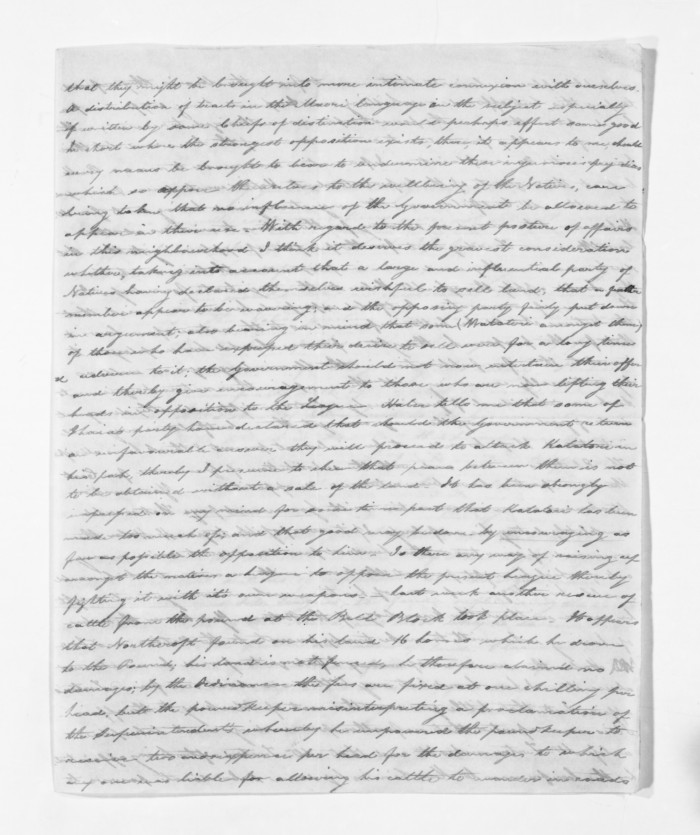 that they might be brought into more intimate connexion with ourselves.
A distribution of tracts in the Maori language on the subject especially
if written by some Chiefs of distinction would perhaps effect some good
In short where the strongest opposition exists, there it appears to me should
every means be brought to bear to undermine their injurious prejudices
which so oppose the sales & to the wellbeing of the Natives, care
being taken that no influence of the Government be allowed to
appear in their use. With regard to the present posture of affairs
in this neighbourhood I think it deserves the gravest consideration
whether, taking into account that a large and influential party of
Natives having declared themselves wishful to sell land, that a greater
number appear to be wavering, and the opposing party finely put down
in argument, also bearing in mind that some (Wiatatori amongst them)
of those who have expressed their desire to sell were for a long time
adverse to it, the Government should not now entertain their offer
and thereby give encouragement to those who are now lifting their
heads in opposition to the League. Halse tells me that some of
Ihaia's party have declared that should the Government return
an unfavorable answer they will proceed to attack Katatori in
his pah, thereby I presume to shew that peace between them is not
to be obtained without a sale of the land. It has been strongly
impressed on my mind for some time past that Katatori has been
made too much of, and that good may be done by encouraging as
far as possible the opposition to him. Is there any way of raising up
amongst the natives a league to oppose the present league thereby
fighting it with its own weapons. Last week another rescue of
cattle from the pound at the Bell Block took place. It appears
that Northcroft found on his land 16 horses which he drove
to the Pound; his land is not fenced, he therefore claimed no
damages; by the Ordinance the fees are fixed at one shilling per
head, but the poundkeeper misinterpreting a proclamation of
the Superintendent whereby he empowered the poundkeeper to
receive two and sixpence per head for the damages to which
any owner is liable for allowing his cattle to wander in roads